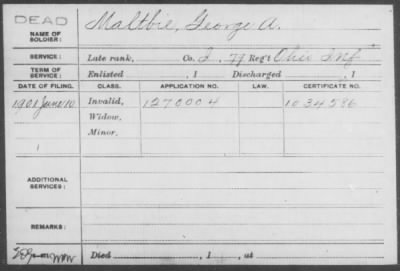 DEAD
NAME OF SOLDIER: Maltbie, George A.
SERVICE: Late rank, Co. I, 79 Reg't Ohio Inf
TERM OF SERVICE: Enlisted , 1 Discharged , 1
DATE OF FILING. CLASS. APPLICATION NO. LAW. CERTIFICATE NO.
1901 June 10 Invalid, 1270004 1034586
Widow,
Minor,
1
ADDITIONAL SERVICES:
REMARKS:
Died , 1 , at